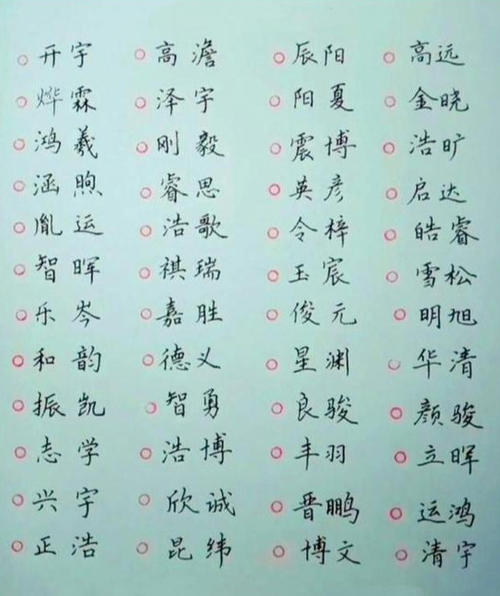 开宇 高澹 辰阳 高远
烨霖 泽宇 阳夏 金晓
鸿羲 刚毅 震博 浩旷
涵煦 睿思 英彦 启达
胤运 浩歌 令梓 皓睿
智晖 祺瑞 玉宸 雪松
乐岑 嘉胜 俊元 明旭
和韵 德义 星渊 华清
振凯 智勇 良骏 颜骏
志学 浩博 丰羽 立晖
兴宇 欣诚 晋鹏 运鸿
正浩 昆纬 博文 清宇